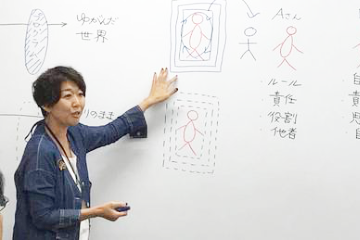 ゆがんだ
世界
りのまま
Aさん
ルール
責任
役割
他者
責